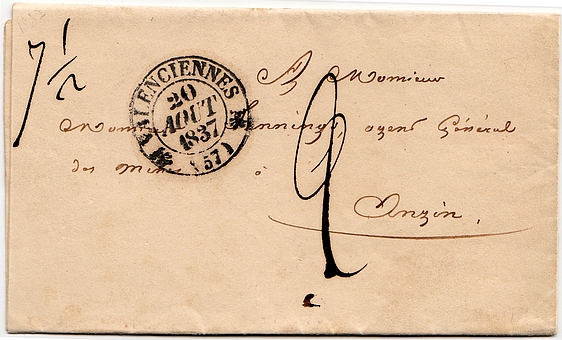 7 1/2
VALENCIENNES
20
AOUT
1837
(57)
A Monsieur
Monsieur Jennings, agent Général
des Mines à
Anzin.
2